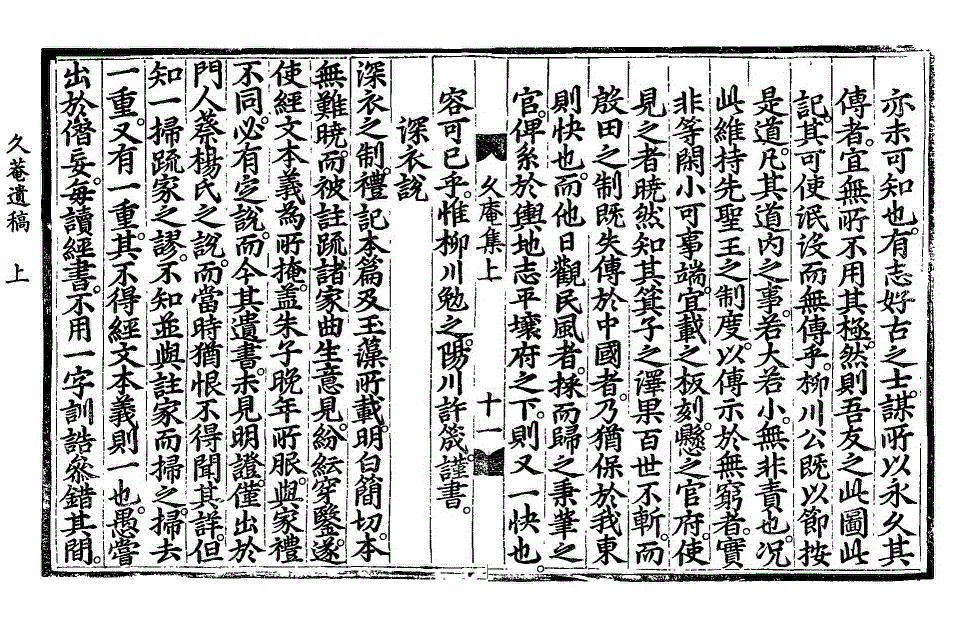 亦未可知也。有志好古之士。謀所以永久其
傳者。宜無所不用其極。然則吾友之此圖此
記。其可使泯沒而無傳乎。柳川公既以節按
是道。凡其道內之事。若大若小。無非責也。况
此維持先聖王之制度。以傳示於無窮者。實
非等閑小可事端。宜載之板刻。懸之官府。使
見之者曉然知其箕子之澤果百世不斬。而
殷田之制既失傳於中國者。乃猶保於我東
則快也。而他日觀民風者。採而歸之秉筆之
官。俾系於輿地志平壤府之下。則又一快也。
久庵集上 十一
容可已乎。惟柳川勉之。陽川許筬謹書。
深衣說
深衣之制。禮記本篇及玉藻所載。明白簡切。本
無難曉。而被註疏諸家曲生意見。紛紜穿鑿。遂
使經文本義爲所掩。葢朱子晚年所服。與家禮
不同。必有定說。而今其遺書。未見明證。僅出於
門人蔡楊氏之說。而當時猶恨不得聞其詳。但
知一掃疏家之謬。不知並與註家而掃之。掃去
一重。又有一重。其不得經文本義則一也。愚嘗
出於僭妄。每讀經書。不用一字訓誥叅錯其間。
久菴遺稿 上